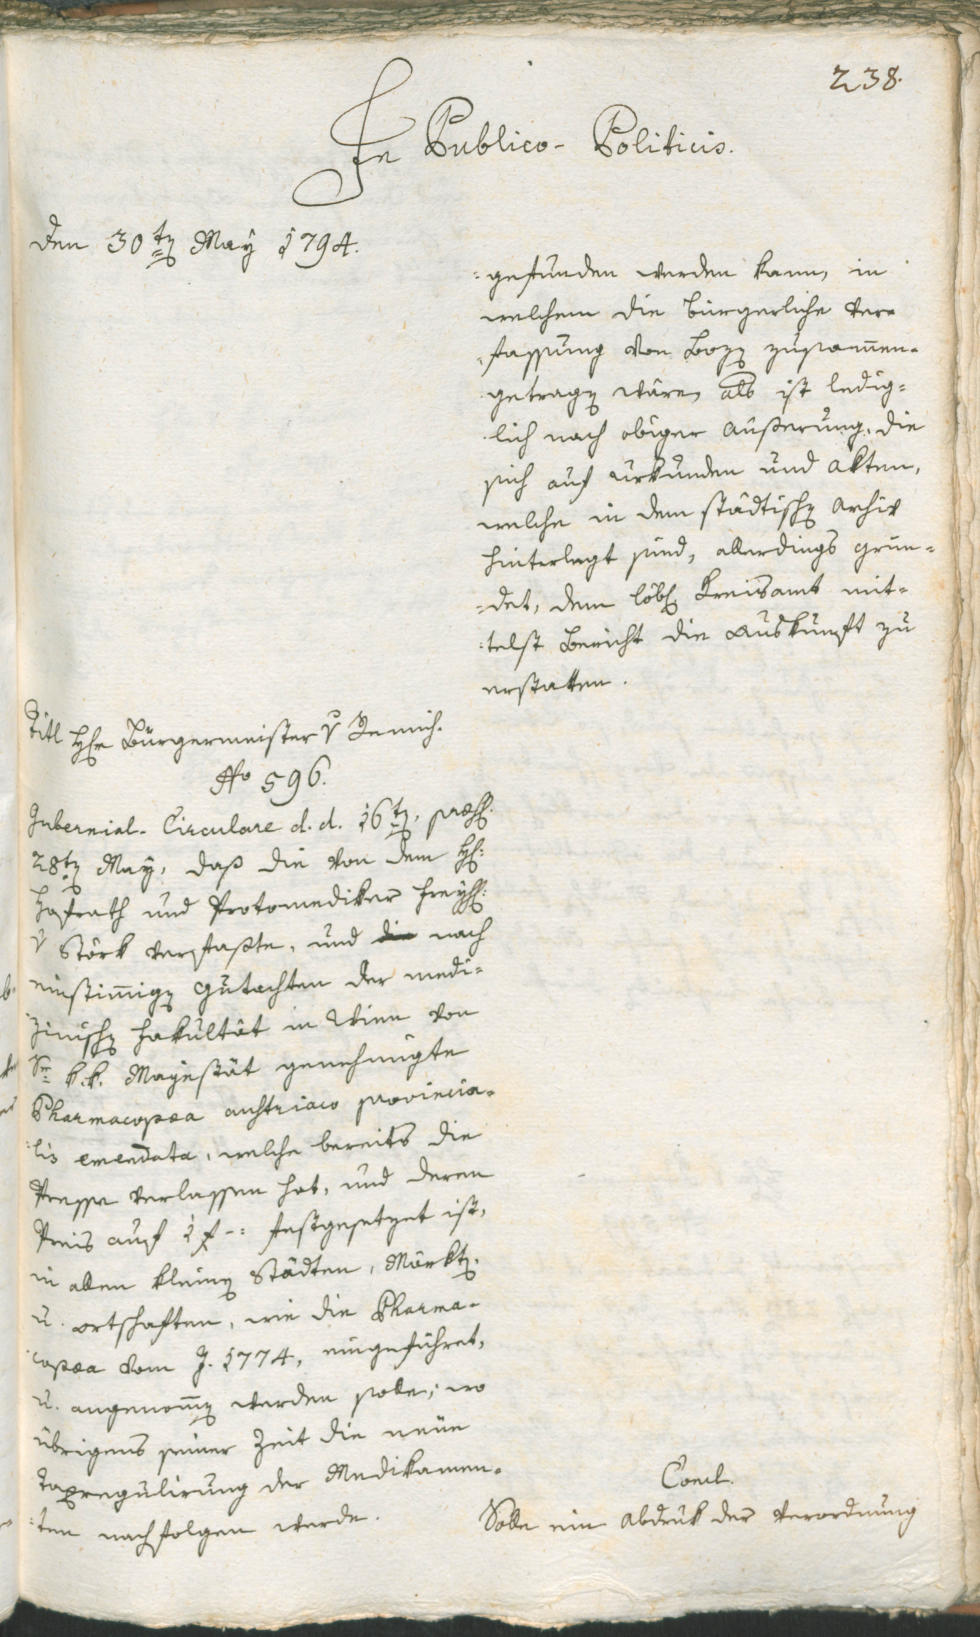 238.
In Publico-Politicis.
Den 30ten May 1794.
gefunden werden kann, in
welchem die bürgerliche Ver-
fassung von Bozen zusammen-
getragen wären, als ist ledig-
lich nach obiger Äußerung, die
sich auf Urkunden und Akten,
welche in dem städtischen Archiv
hinterlegt sind, allerdings grün-
det, dem löbl. Kreisamt mit-
telst Bericht die Auskunft zu
erstatten.
Titl Hr Bürgermeister v Remich.
No 596.
Gubernial-Circulare d. d. 16ten, præs.
28ten May, daß die von dem H:
Hofrath und Protomedikus Freyh:
v Störk verfaßte, und nach
einstimmigen Gutachten der medi-
zinischen Fakultät in Wien von
Sr k. k. Mayestät genehmigte
Pharmacopæa austriaco provincia-
lis emendata, welche bereits die
Presse verlassen hat, und deren
Preis auf 1 f -: festgesetzet ist,
in allen kleinen Städten, Märkten
u. Ortschaften, wie die Pharma-
copæa vom J. 1774, eingeführet,
u. angenommen werden solle; wo
übrigens seiner Zeit die neue
Taxregulirung der Medikamen-
ten nachfolgen werde.
Concl.
Solle ein Abdruk der Verordnung